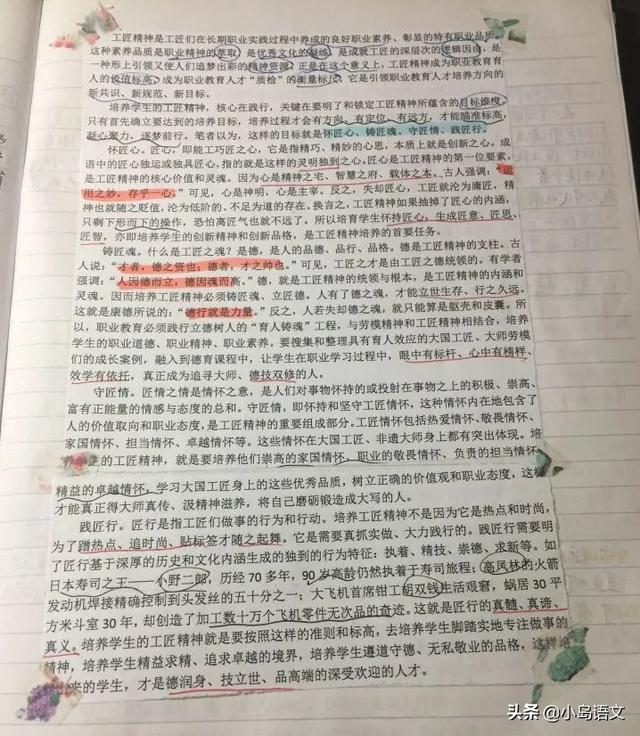 工匠精神是工匠们在长期职业实践过程中养成的良好职业素养、彰显的特有职业品质。
这种素养品质是职业精神的萃取，是优秀文化的凝练，是成就工匠的深层次的逻辑因由，是
一种形上引领又使人们追梦出彩的精神资源。正是在这个意义上，工匠精神成为职业教育育
人的价值标高，成为职业教育人才“质检”的衡量标尺，它是引领职业教育人才培养方向的
新共识、新规范、新目标。
培养学生的工匠精神，核心在践行，关键在要明了和锁定工匠精神所蕴含的目标维度。
只有首先确立要达到的培养目标，培养过程才会有方向、有定位、有远方，才能瞄准标高，
凝心聚力，逐梦前行。笔者以为，这样的目标就是怀匠心、铸匠魂、守匠情、践匠行。
怀匠心。匠心，即能工巧匠之心，它是指精巧、精妙的心思，本质上就是创新之心。成
语中的匠心独运或独具匠心，指的就是这样的灵明独到之心。匠心是工匠精神的第一位要素，
是工匠精神的核心价值和灵魂。因为心是精神之宅、智慧之府、载体之本。古人强调：“运
用之妙，存乎一心。”可见，心是神明，心是主宰。反之，失却匠心，工匠就沦为庸匠，精
神也就随之贬值，沦为低阶的、不足为道的存在。换言之，工匠精神如果抽掉了匠心的内涵，
只剩下形而下的操作，恐怕离匠气也就不远了。所以培育学生怀持匠心，生成匠意、匠思、
匠智，亦即培养学生的创新精神和创新品格，是工匠精神培养的首要任务。
铸匠魂。什么是工匠之魂？是德，是人的品德、品行、品格。德是工匠精神的支柱。古
人说：“才者，德之资也；德者，才之帅也。”可见，工匠之才是由工匠之德统领的。有学者
强调：“人因德而立，德因魂而高。”德，就是工匠精神的统领与根本，是工匠精神的内涵和
灵魂。因而培养工匠精神必须铸匠魂、立匠德。人有了德之魂，才能立世生存、行之久远。
这就是康德所说的：“德行就是力量。”反之，人若失却德之魂，就只能算是躯壳和皮囊。所
以，职业教育必须践行立德树人的“育人铸魂”工程，与劳模精神和工匠精神相结合，培养
学生的职业道德、职业精神、职业素养。要搜集和整理具有育人效应的大国工匠、大师劳模
们的成长案例，融入到德育课程中，让学生在职业学习过程中，眼中有标杆、心中有榜样、
效学有依托，真正成为追寻大师、德技双修的人。
守匠情。匠情之情是情怀之意，是人们对事物怀持的或投射在事物之上的积极、崇高、
富有正能量的情感与态度的总和。守匠情，即怀持和坚守工匠情怀，这种情怀内在地包含了
人的价值取向和职业态度，是工匠精神的重要组成部分。工匠情怀包括热爱情怀、敬畏情怀、
家国情怀、担当情怀、卓越情怀等。这些情怀在大国工匠、非遗大师身上都有突出体现。培
养学生的工匠精神，就是要培养他们崇高的家国情怀，职业的敬畏情怀、负责的担当情怀、
精益的卓越情怀，学习大国工匠身上的这些优秀品质，树立正确的价值观和职业态度，这样
才能真正得大师真传、汲精神滋养，将自己磨砺锻造成大写的人。
践匠行。匠行是指工匠们做事的行为和行动。培养工匠精神不是因为它是热点和时尚，
为了蹭热点、追时尚、贴标签才随之起舞。它是需要真抓实做、大力践行的。践匠行需要明
了匠行基于深厚的历史和文化内涵生成的独到的行为特征：执着、精技、崇德、求新等。如
日本寿司之王——小野二郎，历经70多年，90岁高龄仍然执着于寿司旅程；高凤林的火箭
发动机焊接精确控制到头发丝的五十分之一；大飞机首席钳工胡双钱生活艰窘，蜗居30平
方米斗室30年，却创造了加工数十万个飞机零件无次品的奇迹。这就是匠行的真髓、真谛、
真义。培养学生的工匠精神就是要按照这样的准则和标高，去培养学生脚踏实地专注做事的
精神，培养学生精益求精、追求卓越的境界，培养学生遵道守德、无私敬业的品格，这样培
出来的学生，才是德润身、技立世、品高端的深受欢迎的人才。
头条 @小鸟语文